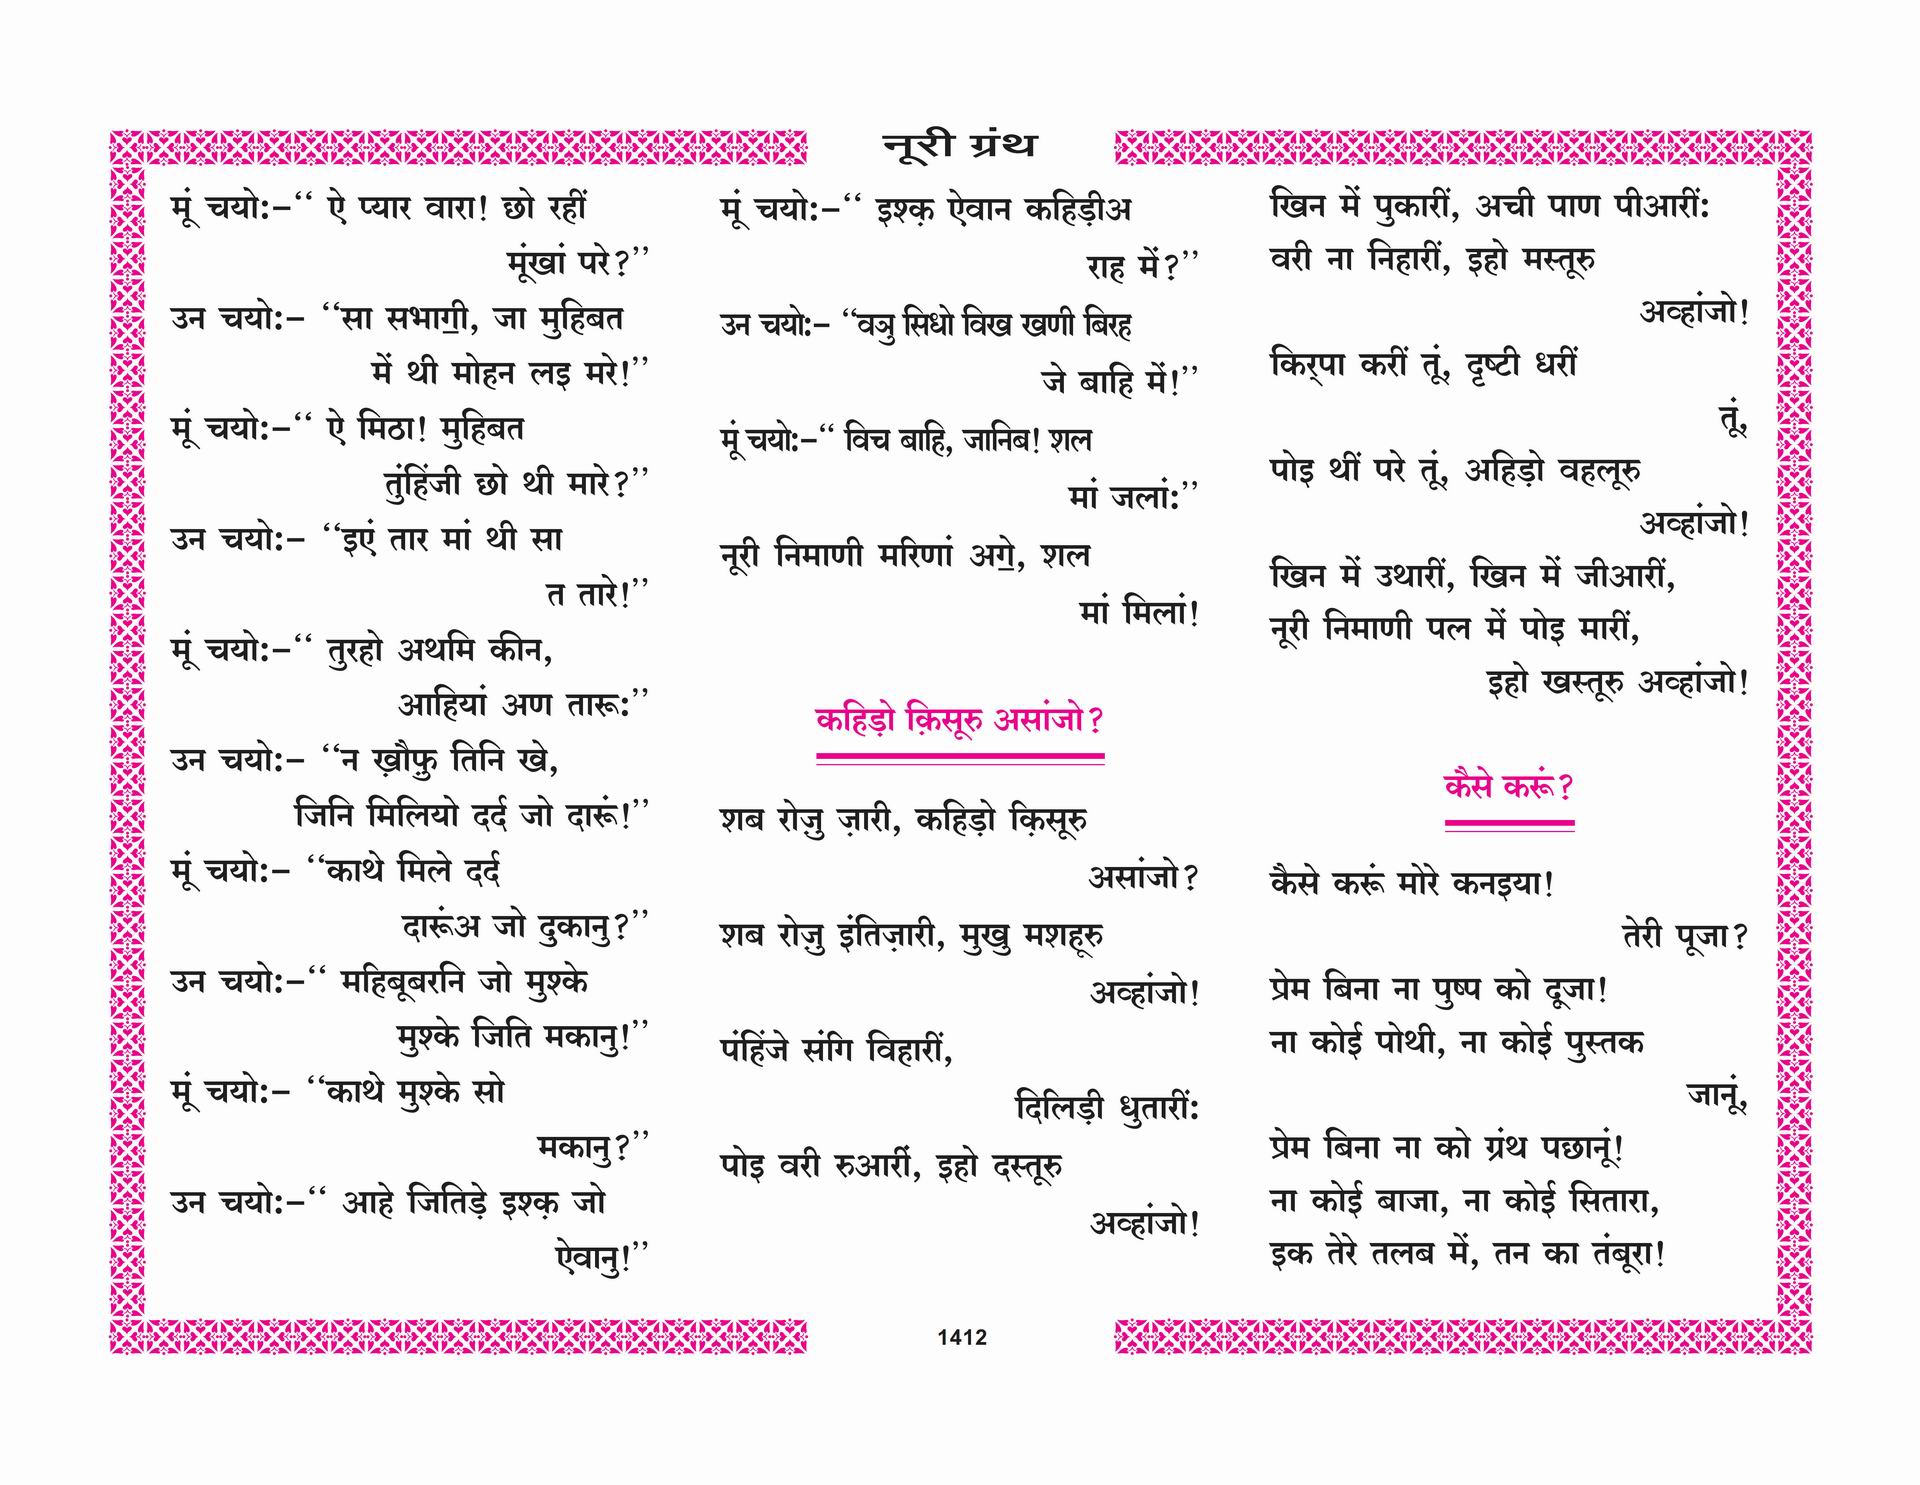 नूरी ग्रंथ
मूं चयो:-‘‘ ऐ प्यार वारा! छो रहीं
मूंखां परे?’’
उन चयो:- ‘‘सा सभाॻी, जा मुहिबत
में थी मोहन लइ मरे!’’
मूं चयो:-‘‘ ऐ मिठा! मुहिबत
तुंहिंजी छो थी मारे?’’
उन चयो:- ‘‘इएं तार मां थी सा
त तारे!’’
मूं चयो:-‘‘ तुरहो अथमि कीन,
आहियां अण तारू:’’
उन चयो:- ‘‘न ख़ौफ़ु तिनि खे,
जिनि मिलियो दर्द जो दारूं!’’
मूं चयो:- ‘‘काथे मिले दर्द
दारूंअ जो दुकानु?’’
उन चयो:-‘‘ महिबूबरनि जो मुश्के
मुश्के जिति मकानु!’’
मूं चयो:- ‘‘काथे मुश्के सो
मकानु?’’
उन चयो:-‘‘ आहे जितिड़े इश्क़ जो
ऐवानु!’’
मूं चयो:-‘‘ इश्क़ ऐवान कहिड़ीअ
राह में?’’
उन चयो:- ‘‘वञु सिधो विख खणी बिरह
जे बाहि में!’’
मूं चयो:-‘‘ विच बाहि, जानिब! शल
मां जलां:’’
नूरी निमाणी मरिणां अॻे, शल
मां मिलां!
कहिड़ो क़िसूरु असांजो?
शब रोज़ु ज़ारी, कहिड़ो क़िसूरु
असांजो?
शब रोज़ु इंतिज़ारी, मुखु मशहूरु
अव्हांजो!
पंहिंजे संगि विहारीं,
दिलिड़ी धुतारीं:
पोइ वरी रुआरीं, इहो दस्तूरु
अव्हांजो!
खिन में पुकारीं, अची पाण पीआरीं:
वरी ना निहारीं, इहो मस्तूरु
अव्हांजो!
किर्‍पा करीं तूं, दृष्टी धरीं
तूं,
पोइ थीं परे तूं, अहिड़ो वहलूरु
अव्हांजो!
खिन में उथारीं, खिन में जीआरीं,
नूरी निमाणी पल में पोइ मारीं,
इहो खस्तूरु अव्हांजो!
कैसे करूं?
कैसे करूं मोरे कनइया!
तेरी पूजा?
प्रेम बिना ना पुष्प को दूजा!
ना कोई पोथी, ना कोई पुस्तक
जानूं,
प्रेम बिना ना को ग्रंथ पछानूं!
ना कोई बाजा, ना कोई सितारा,
इक तेरे तलब में, तन का तंबूरा!
1412